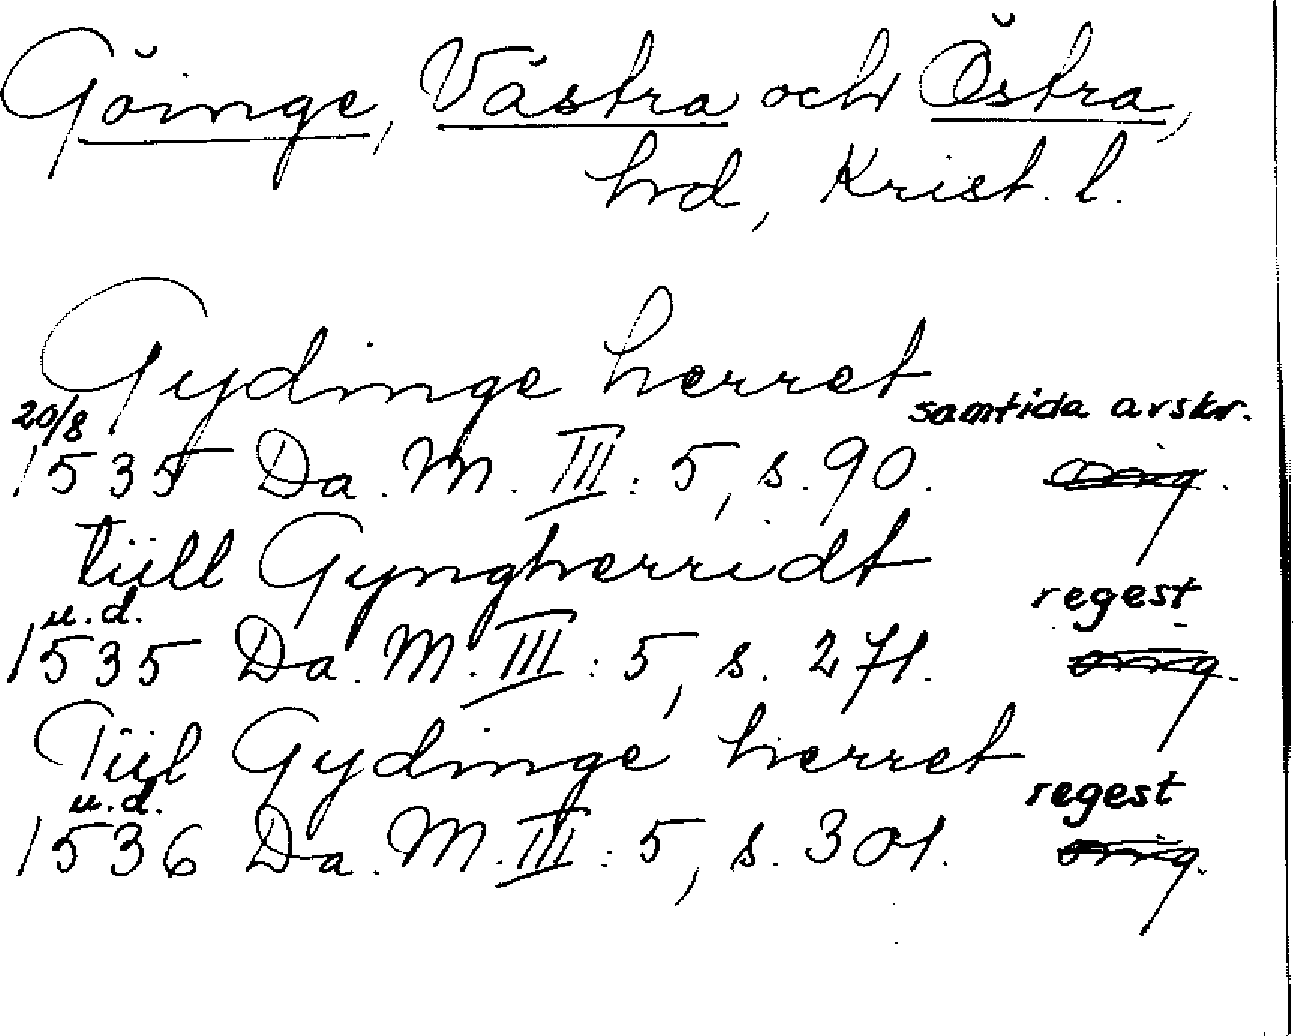 Göinge, Västra och Östra,
hrd, Krist. l.
Gydinge herret
samtida avskr.
20/8
1535 Da. M. III: 5, s. 90. orig.
tiill Gyngherridt
u.d. regest
1535 Da. M. III: 5, s. 271. orig.
Tiil Gydinge herret
u.d. regest
1536 Da. M. III: 5, s. 301. orig.